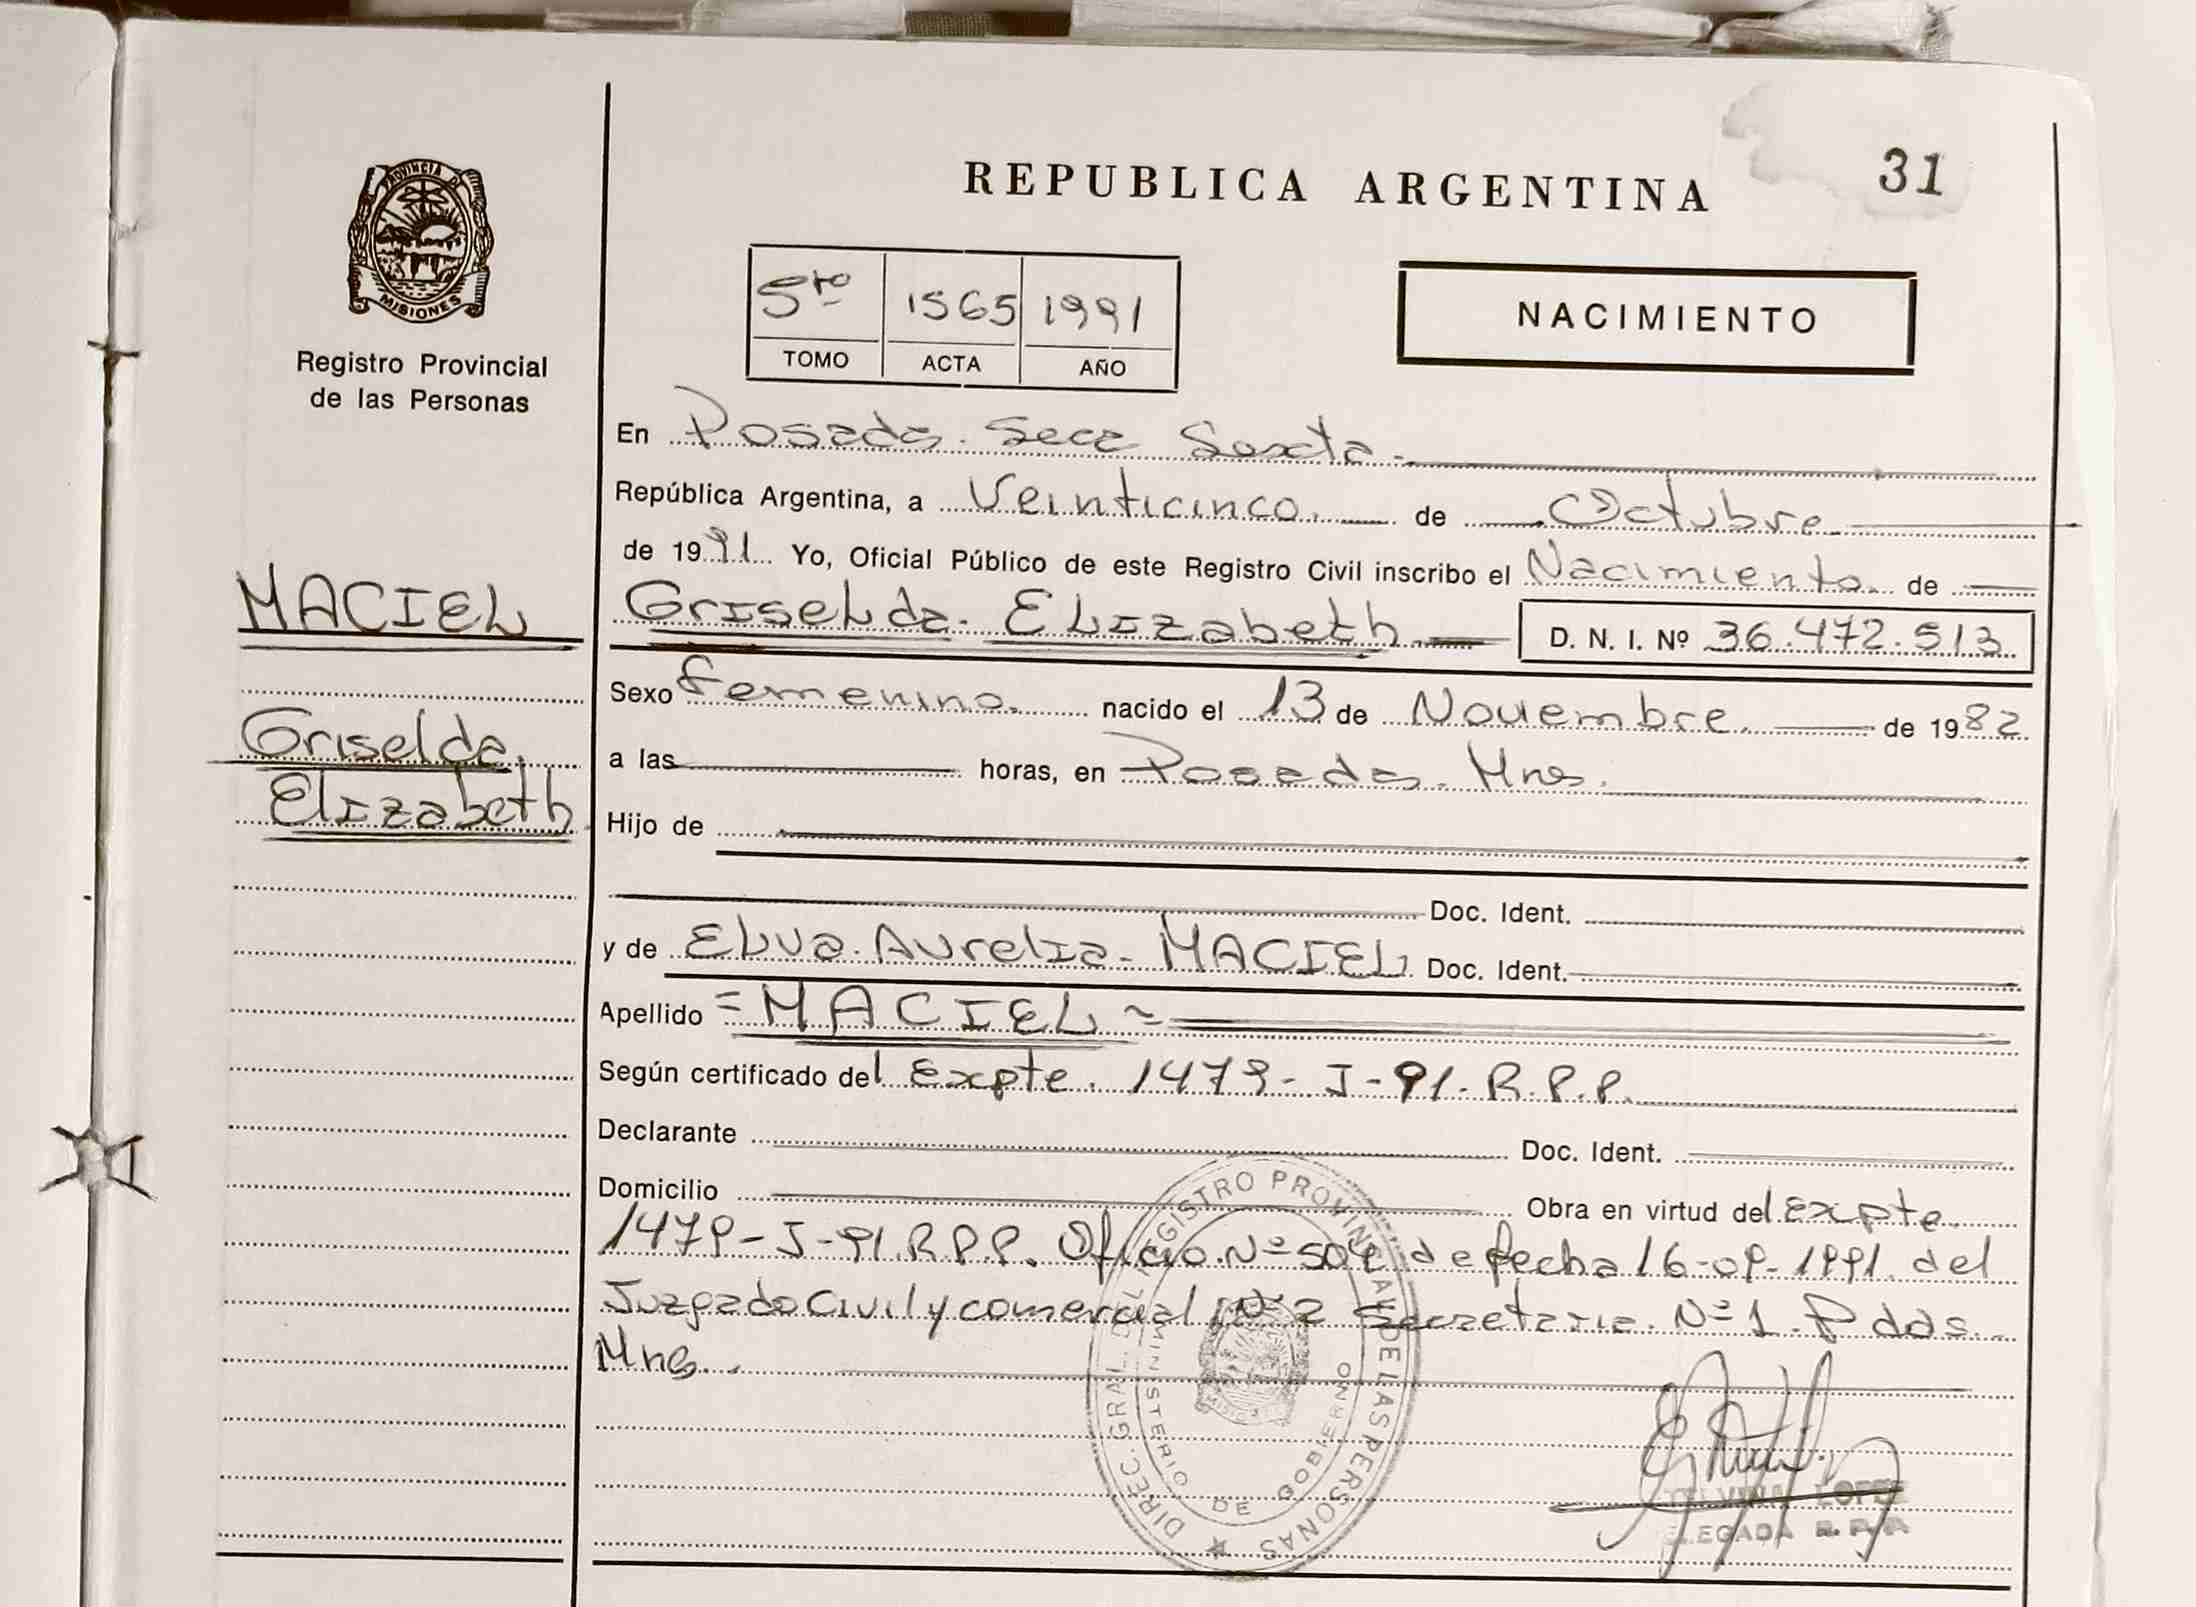 31
REPUBLICA ARGENTINA
PROVINCIA DE
MISIONES
Registro Provincial
de las Personas
5to 1565 1991
TOMO ACTA AÑO
NACIMIENTO
En Posadas. Secc Sexta.
República Argentina, a Veinticinco de Octubre
de 1991 Yo, Oficial Público de este Registro Civil inscribo el Nacimiento de
MACIEL
Griselda
Elizabeth
Griselda. Elizabeth D. N. I. Nº 36.472.513
Sexo Femenino. nacido el 13 de Noviembre de 1982
a las horas, en Posadas. Mnes.
Hijo de
Doc. Ident.
y de Elva. Aurelia- MACIEL. Doc. Ident.
Apellido = MACIEL =
Según certificado del Expte. 1479- J-91. R.P.P.
Declarante Doc. Ident.
Domicilio Obra en virtud del Expte.
1479-J-91.R.P.P. Oficio.Nº de fecha 16-09-1991. del
Juzgado Civil y comercial Nº 2 Secretaria. Nº 1. Pdas.
Mnes.
DIREC. GRAL. DEL REGISTRO PROVINCIAL DE LAS PERSONAS
MINISTERIO DE GOBIERNO
LOPEZ
R.P.P.